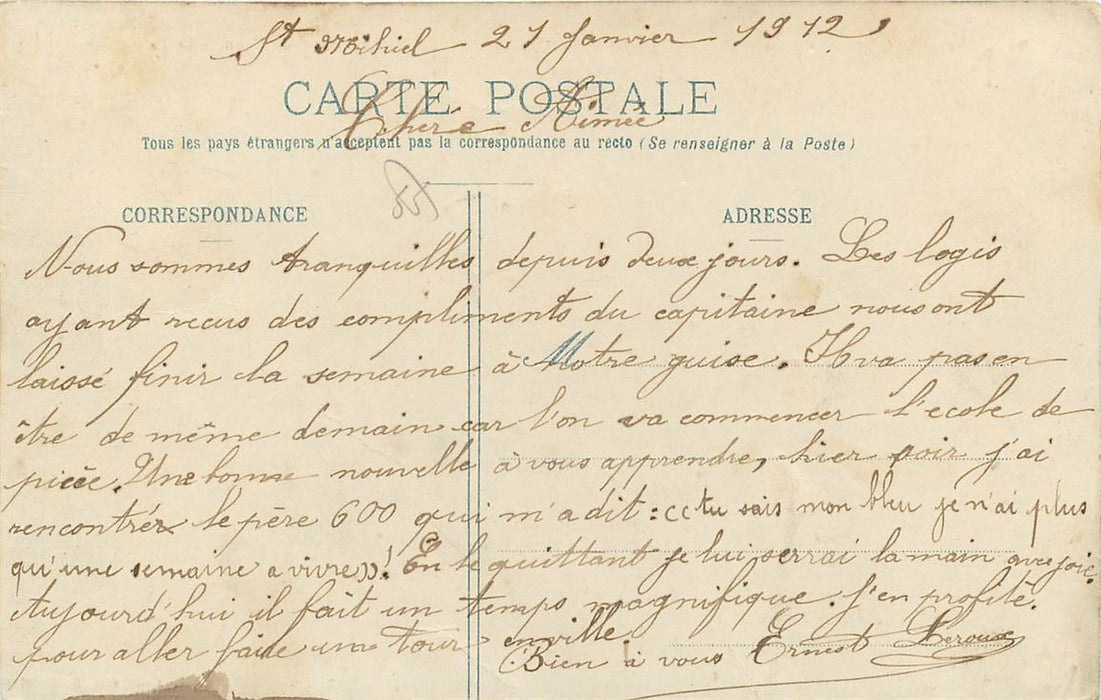 St Mihiel 21 Janvier 1912
CARTE POSTALE
Chère Aimée
Tous les pays étrangers n'acceptent pas la correspondance au recto (Se renseigner à la Poste)
55
CORRESPONDANCE
ADRESSE
Nous sommes tranquilles depuis deux jours. Les logis
ayant recus des compliments du capitaine nous ont
laissé finir la semaine à Notre guise. Il va pas en
être de même demain car l'on va commencer l'ecole de
pièce. Une bonne nouvelle à vous apprendre, hier soir j'ai
rencontrér le père 600 qui m'a dit: ((tu sais mon bleu je n'ai plus
qu'une semaine a vivre))! En le quittant je lui serrai la main avec joie
Aujourd'hui il fait un temps magnifique. J'en profite
pour aller faire un tour en ville.
Bien à vous Ernest Leroux